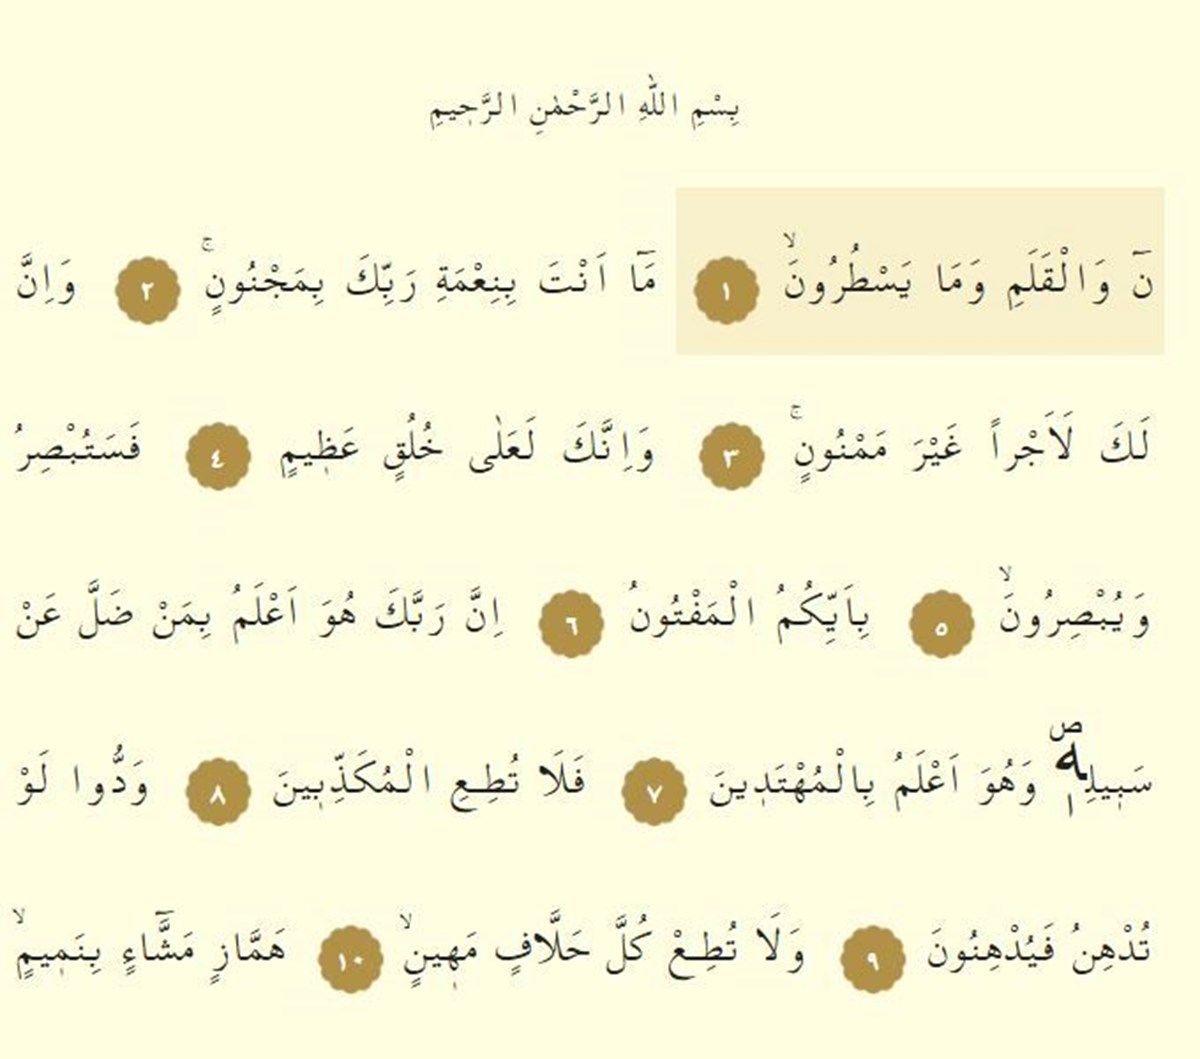 بِسْمِ اللّٰهِ الرَّحْمٰنِ الرَّح۪يمِ
نٓ وَالْقَلَمِ وَمَا يَسْطُرُونَۙ ١ مَٓا اَنْتَ بِنِعْمَةِ رَبِّكَ بِمَجْنُونٍۚ ٢ وَاِنَّ
لَكَ لَاَجْراً غَيْرَ مَمْنُونٍۚ ٣ وَاِنَّكَ لَعَلٰى خُلُقٍ عَظ۪يمٍ ٤ فَسَتُبْصِرُ
وَيُبْصِرُونَۙ ٥ بِاَيِّكُمُ الْمَفْتُونُ ٦ اِنَّ رَبَّكَ هُوَ اَعْلَمُ بِمَنْ ضَلَّ عَنْ
سَب۪يلِه۪ۖ وَهُوَ اَعْلَمُ بِالْمُهْتَد۪ينَ ٧ فَلَا تُطِعِ الْمُكَذِّب۪ينَ ٨ وَدُّوا لَوْ
تُدْهِنُ فَيُدْهِنُونَ ٩ وَلَا تُطِعْ كُلَّ حَلَّافٍ مَه۪ينٍۙ ١٠ هَمَّازٍ مَشَّٓاءٍ بِنَم۪يمٍۙ